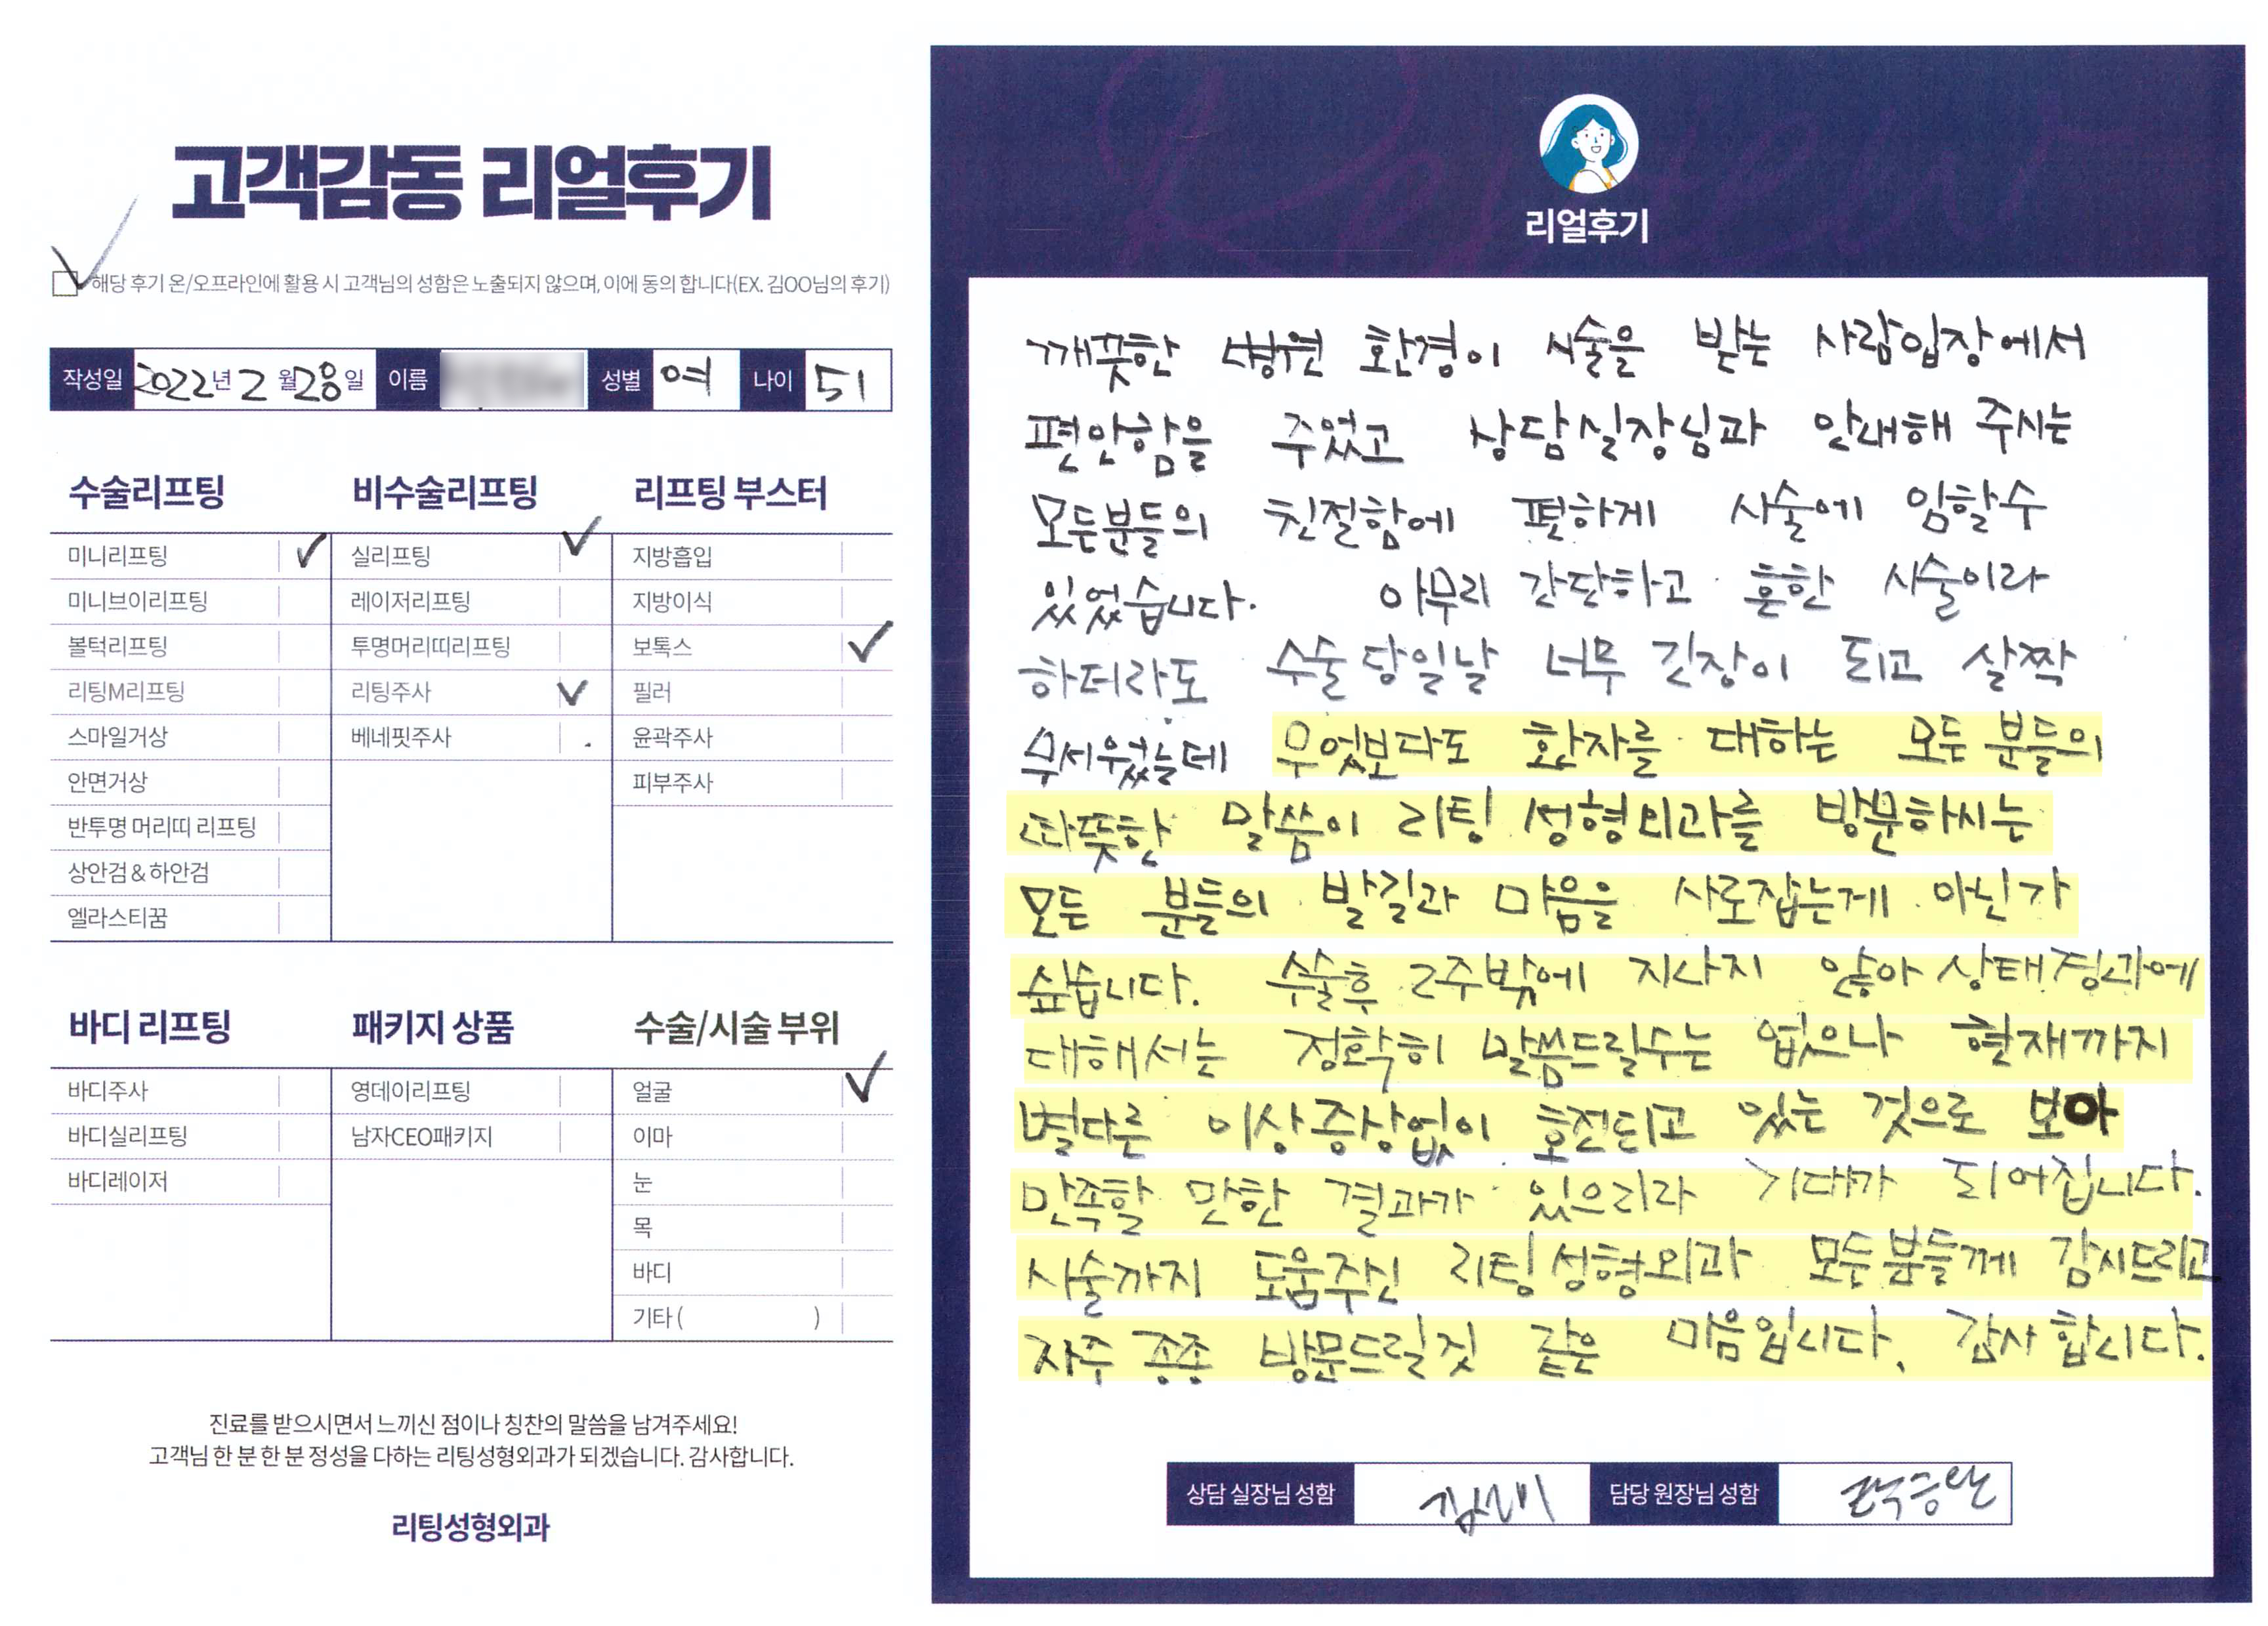 고객감동 리얼후기
해당 후기 온/오프라인에 활용 시 고객님의 성함은 노출되지 않으며, 이에 동의 합니다(EX. 김OO님의 후기)
작성일 2022년 2월 28일 이름 성별 여 나이 51
수술리프팅
미니리프팅 ✓
미니브이리프팅
볼턱리프팅
리팅M리프팅
스마일거상
안면거상
반투명 머리띠 리프팅
상안검&하안검
엘라스티꿈
비수술리프팅
실리프팅 ✓
레이저리프팅
투명머리띠리프팅
리팅주사 ✓
베네핏주사
리프팅 부스터
지방흡입
지방이식
보톡스 ✓
필러
윤곽주사
피부주사
바디 리프팅
바디주사
바디실리프팅
바디레이저
패키지 상품
영데이리프팅
남자CEO패키지
수술/시술 부위
얼굴 ✓
이마
눈
목
바디
기타 ( )
진료를 받으시면서 느끼신 점이나 칭찬의 말씀을 남겨주세요!
고객님 한 분 한 분 정성을 다하는 리팅성형외과가 되겠습니다. 감사합니다.
리팅성형외과
리얼후기
깨끗한 병원 환경이 시술을 받는 사람입장에서
편안함을 주었고 상담실장님과 안내해 주시는
모든분들의 친절함에 편하게 시술에 임할수
있었습니다. 아무리 간단하고 흔한 시술이라
하더라도 수술 당일날 너무 긴장이 되고 살짝
무서웠는데 무엇보다도 환자를 대하는 모든 분들의
따뜻한 말씀이 리팅 성형외과를 방문하시는
모든 분들의 발길과 마음을 사로잡는게 아닌가
싶습니다. 수술후 2주밖에 지나지 않아 상태경과에
대해서는 정확히 말씀드릴수는 없으나 현재까지
별다른 이상증상없이 호전되고 있는 것으로 보아
만족할 만한 결과가 있으리라 기대가 되어집니다.
시술까지 도움주신 리팅성형외과 모든분들께 감사드리고
자주 종종 방문드릴것 같은 마음입니다. 감사합니다.
상담 실장님 성함 담당 원장님 성함